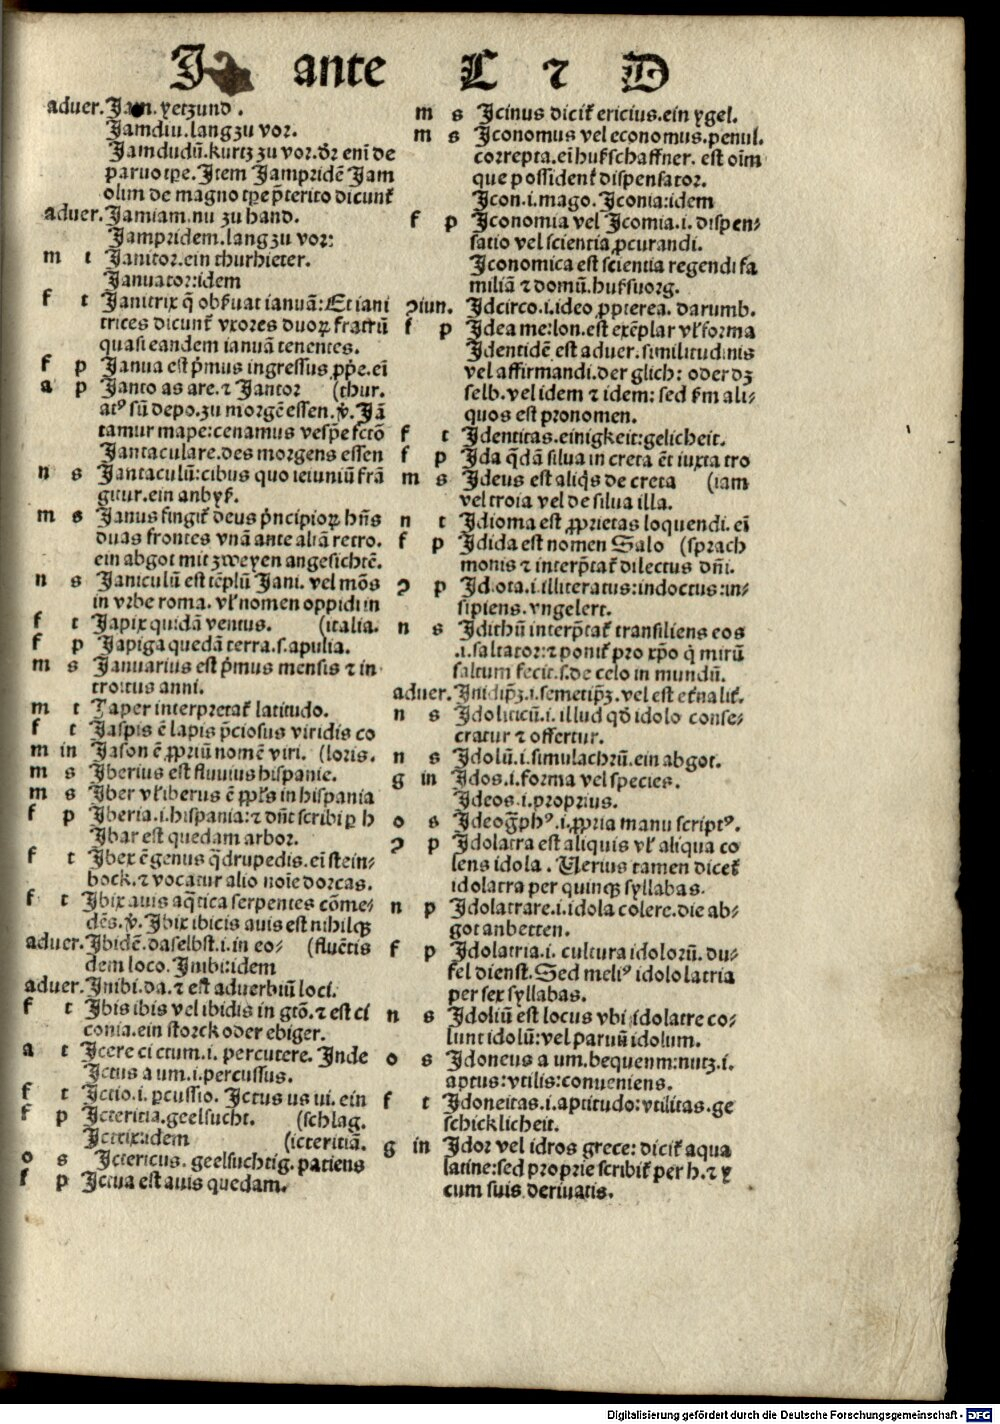 I ante C ⁊ D
aduer. Jam. yetzund.
Jamdiu. lang zu vor.
Jamdudū. kurtz zu vor. dr̄ enī de
paruo tpe. Item Jampridē Jam
olim de magno tpe p̄terito dicunt̄
aduer. Jamiam. nu zu hand.
Jampridem. lang zu vor:
m t Janitor. ein thurhieter.
Januator: idem
f t Janitrix q̄ obẜuat ianuā: Et iani
trices dicunt̄ vxores duoꝝ fratrū
quasi eandem ianuā tenentes.
f p Janua est p̄mus ingressus ꝓp̄e. eī
a p Janto as are. ⁊ Jantor (thur.
atꝰ sū depo. zu morgē essen. v̄. Jā
tamur mape: cenamus vesp̄e fctō
Jantaculare. des morgens essen
n s Jantaculū: cibus quo ieiuniū frā
gitur. ein anbyß.
m s Janus fingit̄ deus p̄ncipioꝝ hn̄s
duas frontes vnā ante aliā retro.
ein abgot mit zweyen angesichtē.
n s Janiculū est tēplū Jani. vel mōs
in vrbe roma. vl̄ nomen oppidi in
f t Japix quidā ventus. (italia.
f p Japiga quedā terra. s. apulia.
m s Januarius est p̄mus mensis ⁊ in
troitus anni.
m t Japer interpretat̄ latitudo.
f t Jaspis ē lapis p̄ciosus viridis co
m in Jason ē ꝓpriū nomē viri. (loris.
m s Jberius est fluuius hispanie.
m s Jber vl̄ iberus ē ppl̄s in hispania
f p Jberia. i. hispania: ⁊ dn̄t scribi ꝑ h
Jbar est quedam arbor.
f t Jbex ē genus q̄drupedis. eī stein-
bock. ⁊ vocatur alio noīe dorcas.
f t Jbix auis aq̄tica serpentes cōme-
dēs. v̄. Jbix ibicis auis est nihilqꝫ
aduer. Jbidē. daselbst. i. in eo- (fluētis
dem loco. Jnibi: idem
aduer. Jnibi. da. ⁊ est aduerbiū loci.
f t Jbis ibis vel ibidis in gtō. ⁊ est ci
conia. ein storck oder ebiger.
a t Jcere ci ctum. i. percutere. Jnde
Jctus a um. i. percussus.
f t Jctio. i. ꝑcussio. Jctus us ui. ein
f p Jcteritia. geelsucht. (schlag.
Jctrix: idem (icteritiā.
o s Jctericus. geelsuchtig. patiens
f p Jctua est auis quedam.
m s Jcinus dicit̄ ericius. ein ygel.
m s Jconomus vel economus. penul.
correpta. eī hußschaffner. est oīm
que possident̄ dispensator.
Jcon. i. mago. Jconia: idem
f p Jconomia vel Jcomia. i. dispen-
satio vel scientia ꝓcurandi.
Jconomica est scientia regendi fa
miliā ⁊ domū. hußsuorg.
ꝯiun. Jdcirco. i. ideo ꝓpterea. darumb.
f p Jdea me: lon. est exēplar vl̄ forma
Jdentidē est aduer. similitudinis
vel affirmandi. der glich: oder dz
selb. vel idem ⁊ idem: sed ẜm ali-
quos est pronomen.
f t Jdentitas. einigkeit: gelicheit.
f p Jda q̄dā silua in creta ēt iuxta tro
m s Jdeus est aliq̄s de creta (iam
vel troia vel de silua illa.
n t Jdioma est ꝓprietas loquendi. eī
f p Jdida est nomen Salo (sprach
monis ⁊ interp̄tat̄ dilectus dn̄i.
ꝯ p Jdiota. i. illiteratus: indoctus: in-
sipiens. vngelert.
n s Jdithū interp̄tat̄ transiliens eos
.i. saltator: ⁊ ponit̄ pro xp̄o q̄ mirū
saltum fecit. s. de celo in mundū.
aduer. Jnidip̄ꝫ. i. semetip̄ꝫ. vel est et̄nalit̄.
n s Jdoliticū. i. illud qd̄ idolo conse-
cratur ⁊ offertur.
n s Jdolū. i. simulachrū. ein abgot.
g in Jdos. i. forma vel species.
Jdeos. i. proprius.
o s Jdeogp̄hꝰ. i. ꝓpria manu scriptꝰ.
ꝯ p Jdolatra est aliquis vl̄ aliqua co
lens idola. Verius tamen dicet̄
idolatra per quinqꝫ syllabas.
n p Jdolatrare. i. idola colere. die ab-
got anbetten.
f p Jdolatria. i. cultura idolorū. du-
fel dienst. Sed meliꝰ idololatria
per sex syllabas.
n s Jdoliū est locus vbi idolatre co-
lunt idolū: vel paruū idolum.
o s Jdoneus a um. bequem: nutz. i.
aptus: vtilis: conueniens.
f t Jdoneitas. i. aptitudo: vtilitas. ge
schicklicheit.
g in Jdor vel idros grece: dicit̄ aqua
latine: sed proprie scribit̄ per h. ⁊ y
cum suis deriuatis.
Digitalisierung gefördert durch die Deutsche Forschungsgemeinschaft - DFG